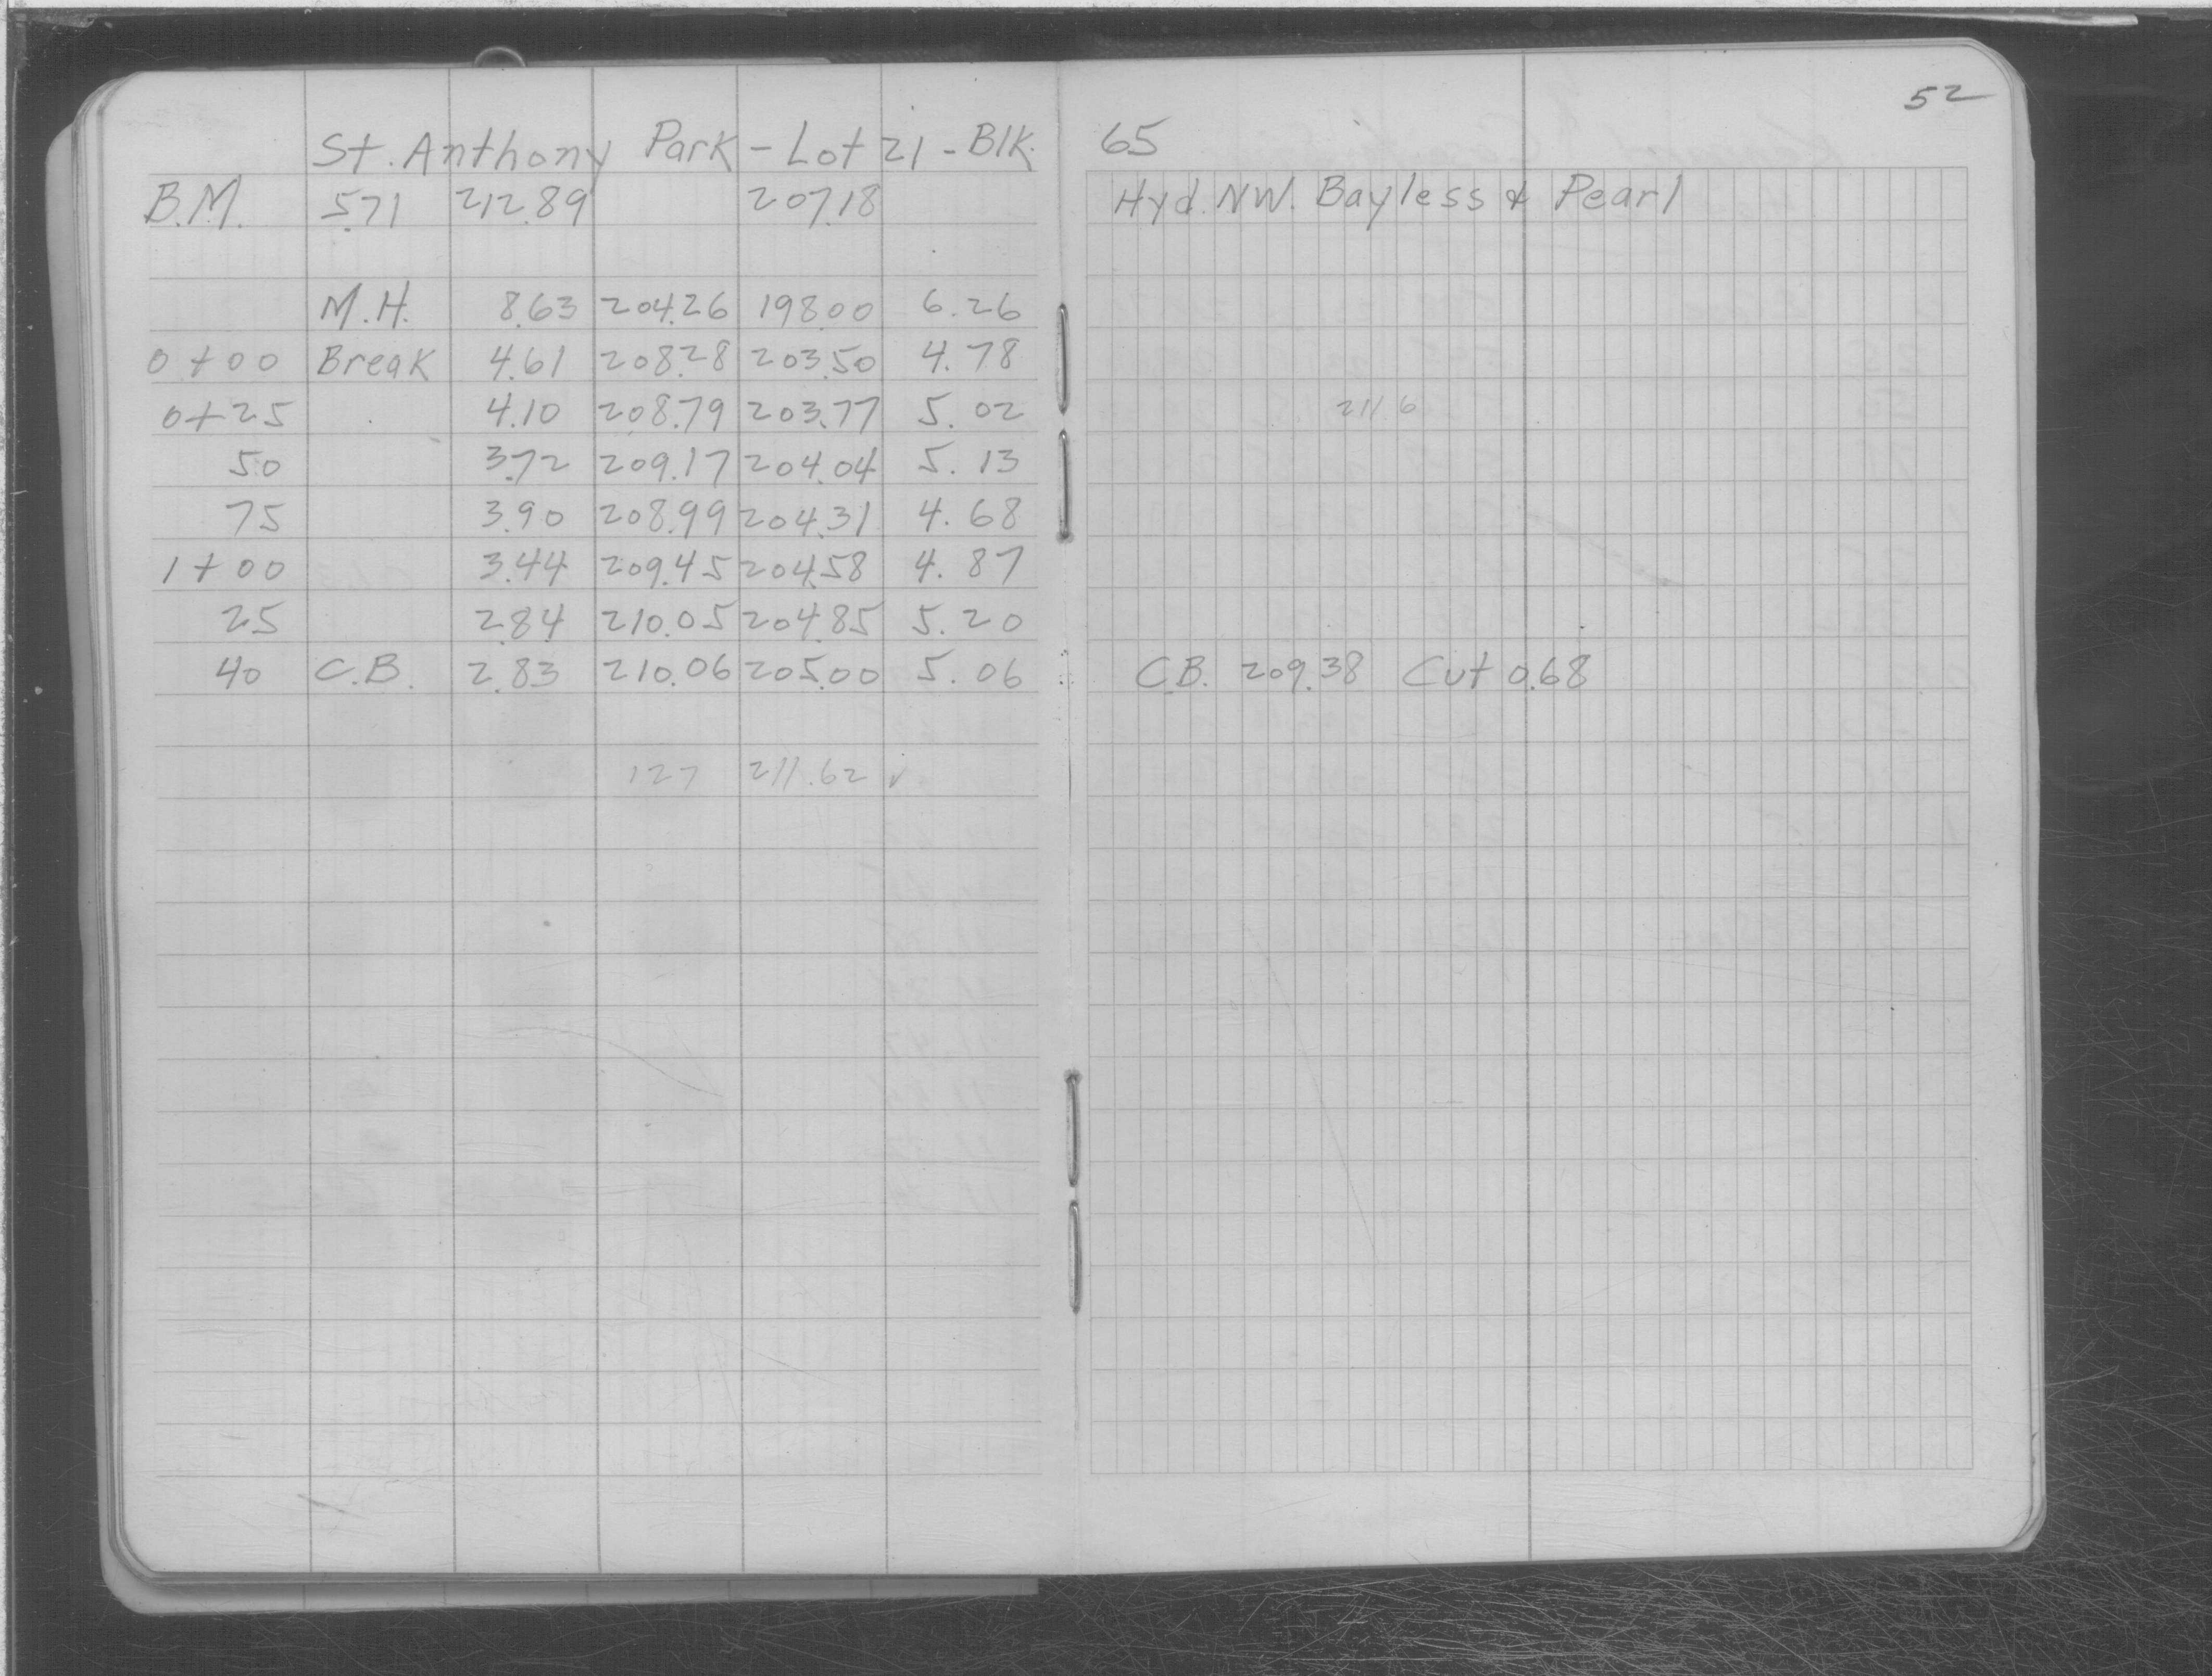 52
St. Anthony Park - Lot 21 - Blk. 65
B.M. 5.71 212.89 207.18 Hyd. NW. Bayless & Pearl
M.H. 8.63 204.26 198.00 6.26
0+00 Break 4.61 208.28 203.50 4.78
0+25 4.10 208.79 203.77 5.02 211.6
50 3.72 209.17 204.04 5.13
75 3.90 208.99 204.31 4.68
1+00 3.44 209.45 204.58 4.87
25 2.84 210.05 204.85 5.20
40 C.B. 2.83 210.06 205.00 5.06 C.B. 209.38 Cut 0.68
127 211.62 ✓